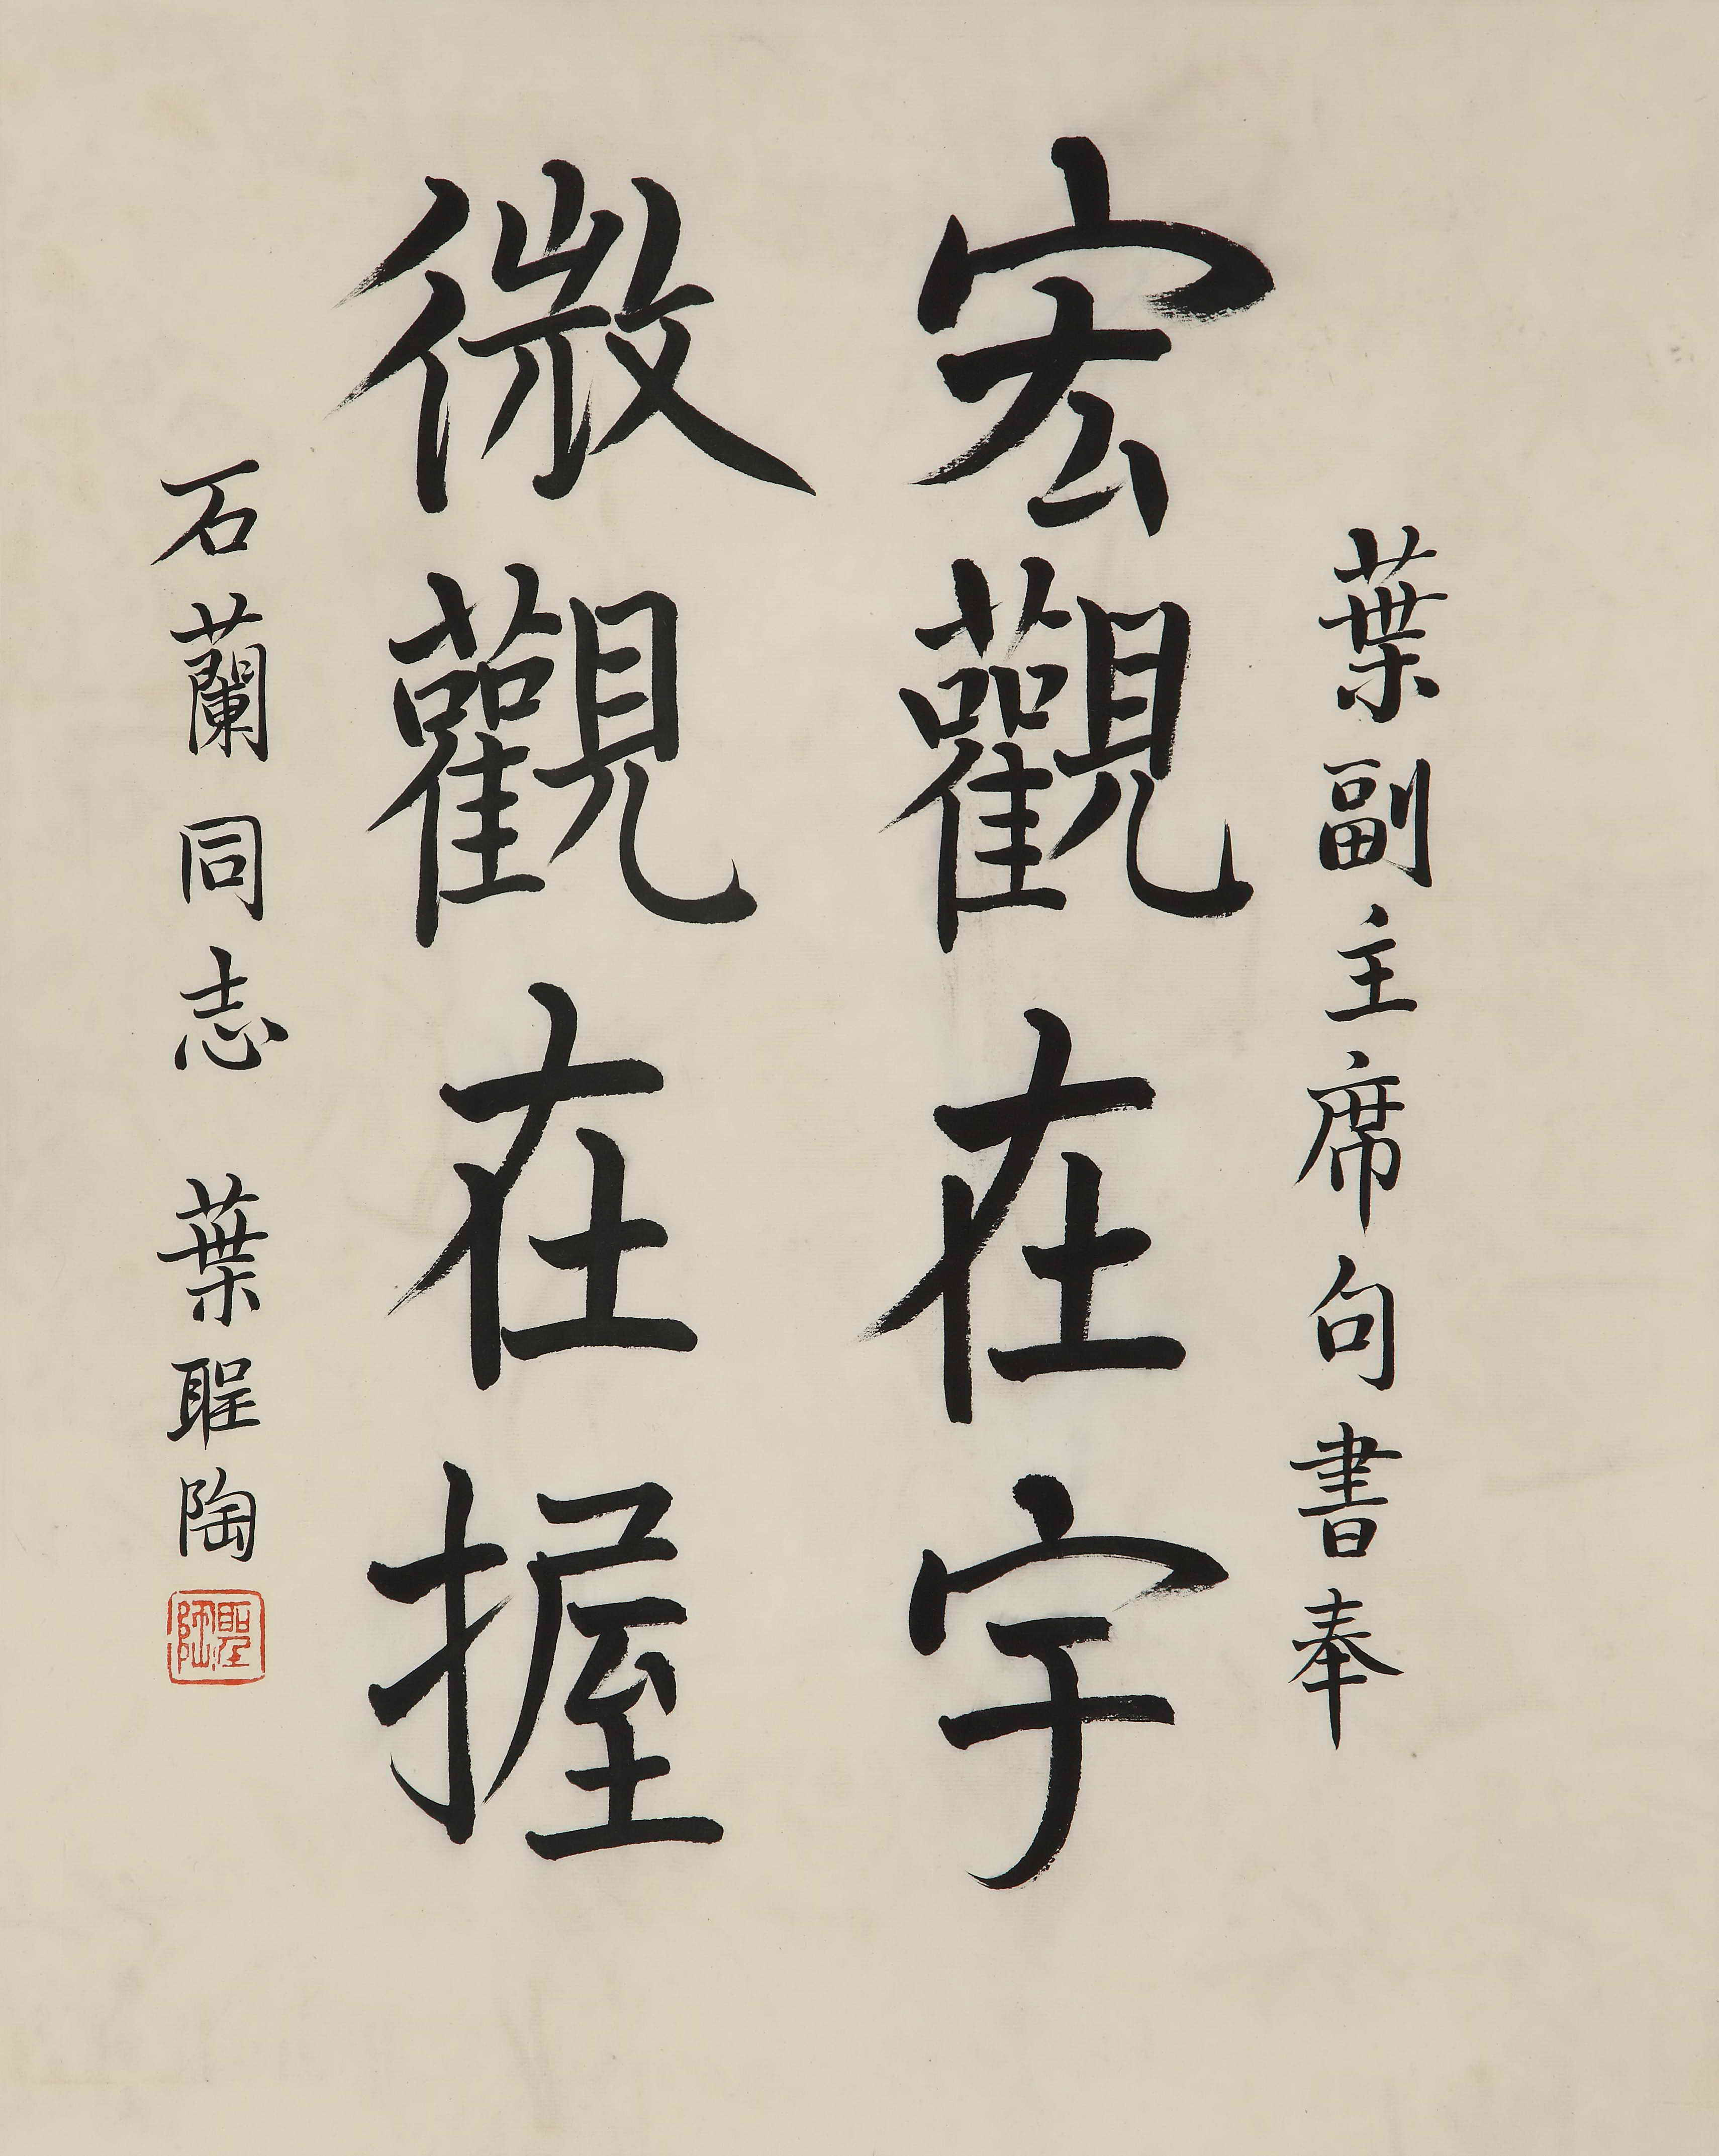 葉副主席句書奉
宏觀在宇
微觀在握
石蘭同志 葉聖陶
聖陶